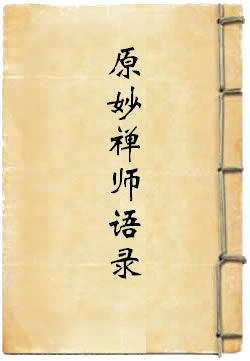 原妙禅师语录